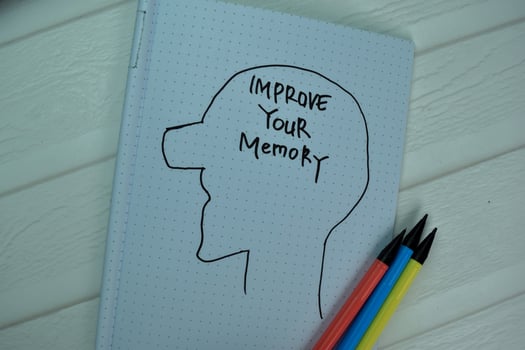 IMPROVE
YOUR
Memory